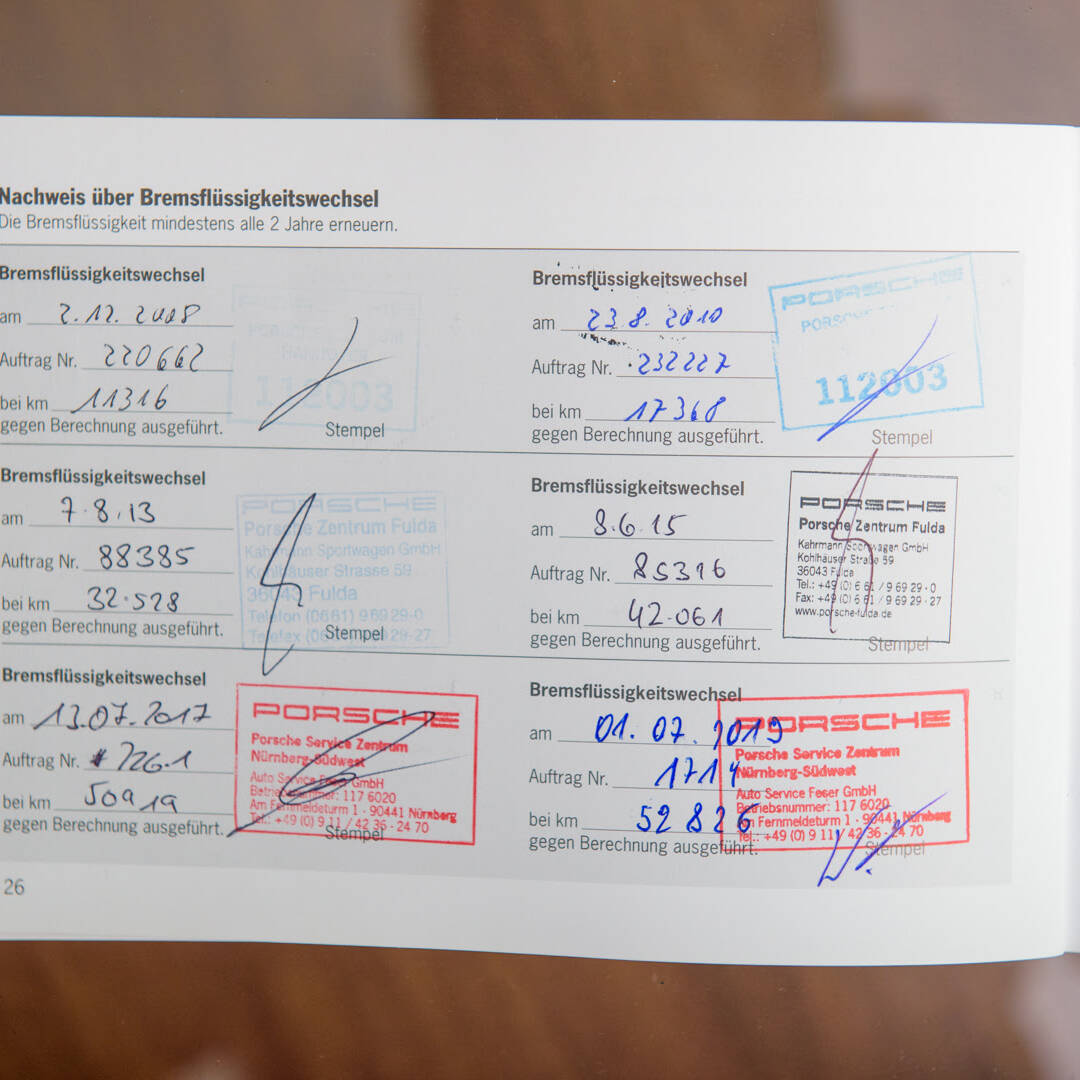 Nachweis über Bremsflüssigkeitswechsel
Die Bremsflüssigkeit mindestens alle 2 Jahre erneuern.
Bremsflüssigkeitswechsel
am 2.12.2008
Auftrag Nr. 220662
bei km 11316
gegen Berechnung ausgeführt.
PORSCHE
112003
Stempel
Bremsflüssigkeitswechsel
am 23.8.2010
Auftrag Nr. 232227
bei km 17368
gegen Berechnung ausgeführt.
PORSCHE
112003
Stempel
Bremsflüssigkeitswechsel
am 7.8.13
Auftrag Nr. 88385
bei km 32.528
gegen Berechnung ausgeführt.
PORSCHE
Porsche Zentrum Fulda
Kahrmann Sportwagen GmbH
Kohlhäuser Strasse 59
36043 Fulda
Telefon (0661) 96929-0
Telefax (0661) 96929-27
Stempel
Bremsflüssigkeitswechsel
am 8.6.15
Auftrag Nr. 85316
bei km 42.061
gegen Berechnung ausgeführt.
PORSCHE
Porsche Zentrum Fulda
Kahrmann Sportwagen GmbH
Kohlhäuser Straße 59
36043 Fulda
Tel.: +49 (0) 6 61 / 9 69 29 - 0
Fax: +49 (0) 6 61 / 9 69 29 - 27
www.porsche-fulda.de
Stempel
Bremsflüssigkeitswechsel
am 13.07.2017
Auftrag Nr.
bei km 50919
gegen Berechnung ausgeführt.
PORSCHE
Porsche Service Zentrum
Nürnberg-Südwest
Auto Service Feser GmbH
Betriebsnummer: 117 6020
Am Fernmeldeturm 1 - 90441 Nürnberg
Tel.: +49 (0) 9 11 / 42 36 - 24 70
Stempel
Bremsflüssigkeitswechsel
am 01.07.2019
Auftrag Nr. 1714
bei km 52826
gegen Berechnung ausgeführt.
PORSCHE
Porsche Service Zentrum
Nürnberg-Südwest
Auto Service Feser GmbH
Betriebsnummer: 117 6020
Am Fernmeldeturm 1 - 90441 Nürnberg
Tel.: +49 (0) 9 11 / 42 36 - 24 70
Stempel
26